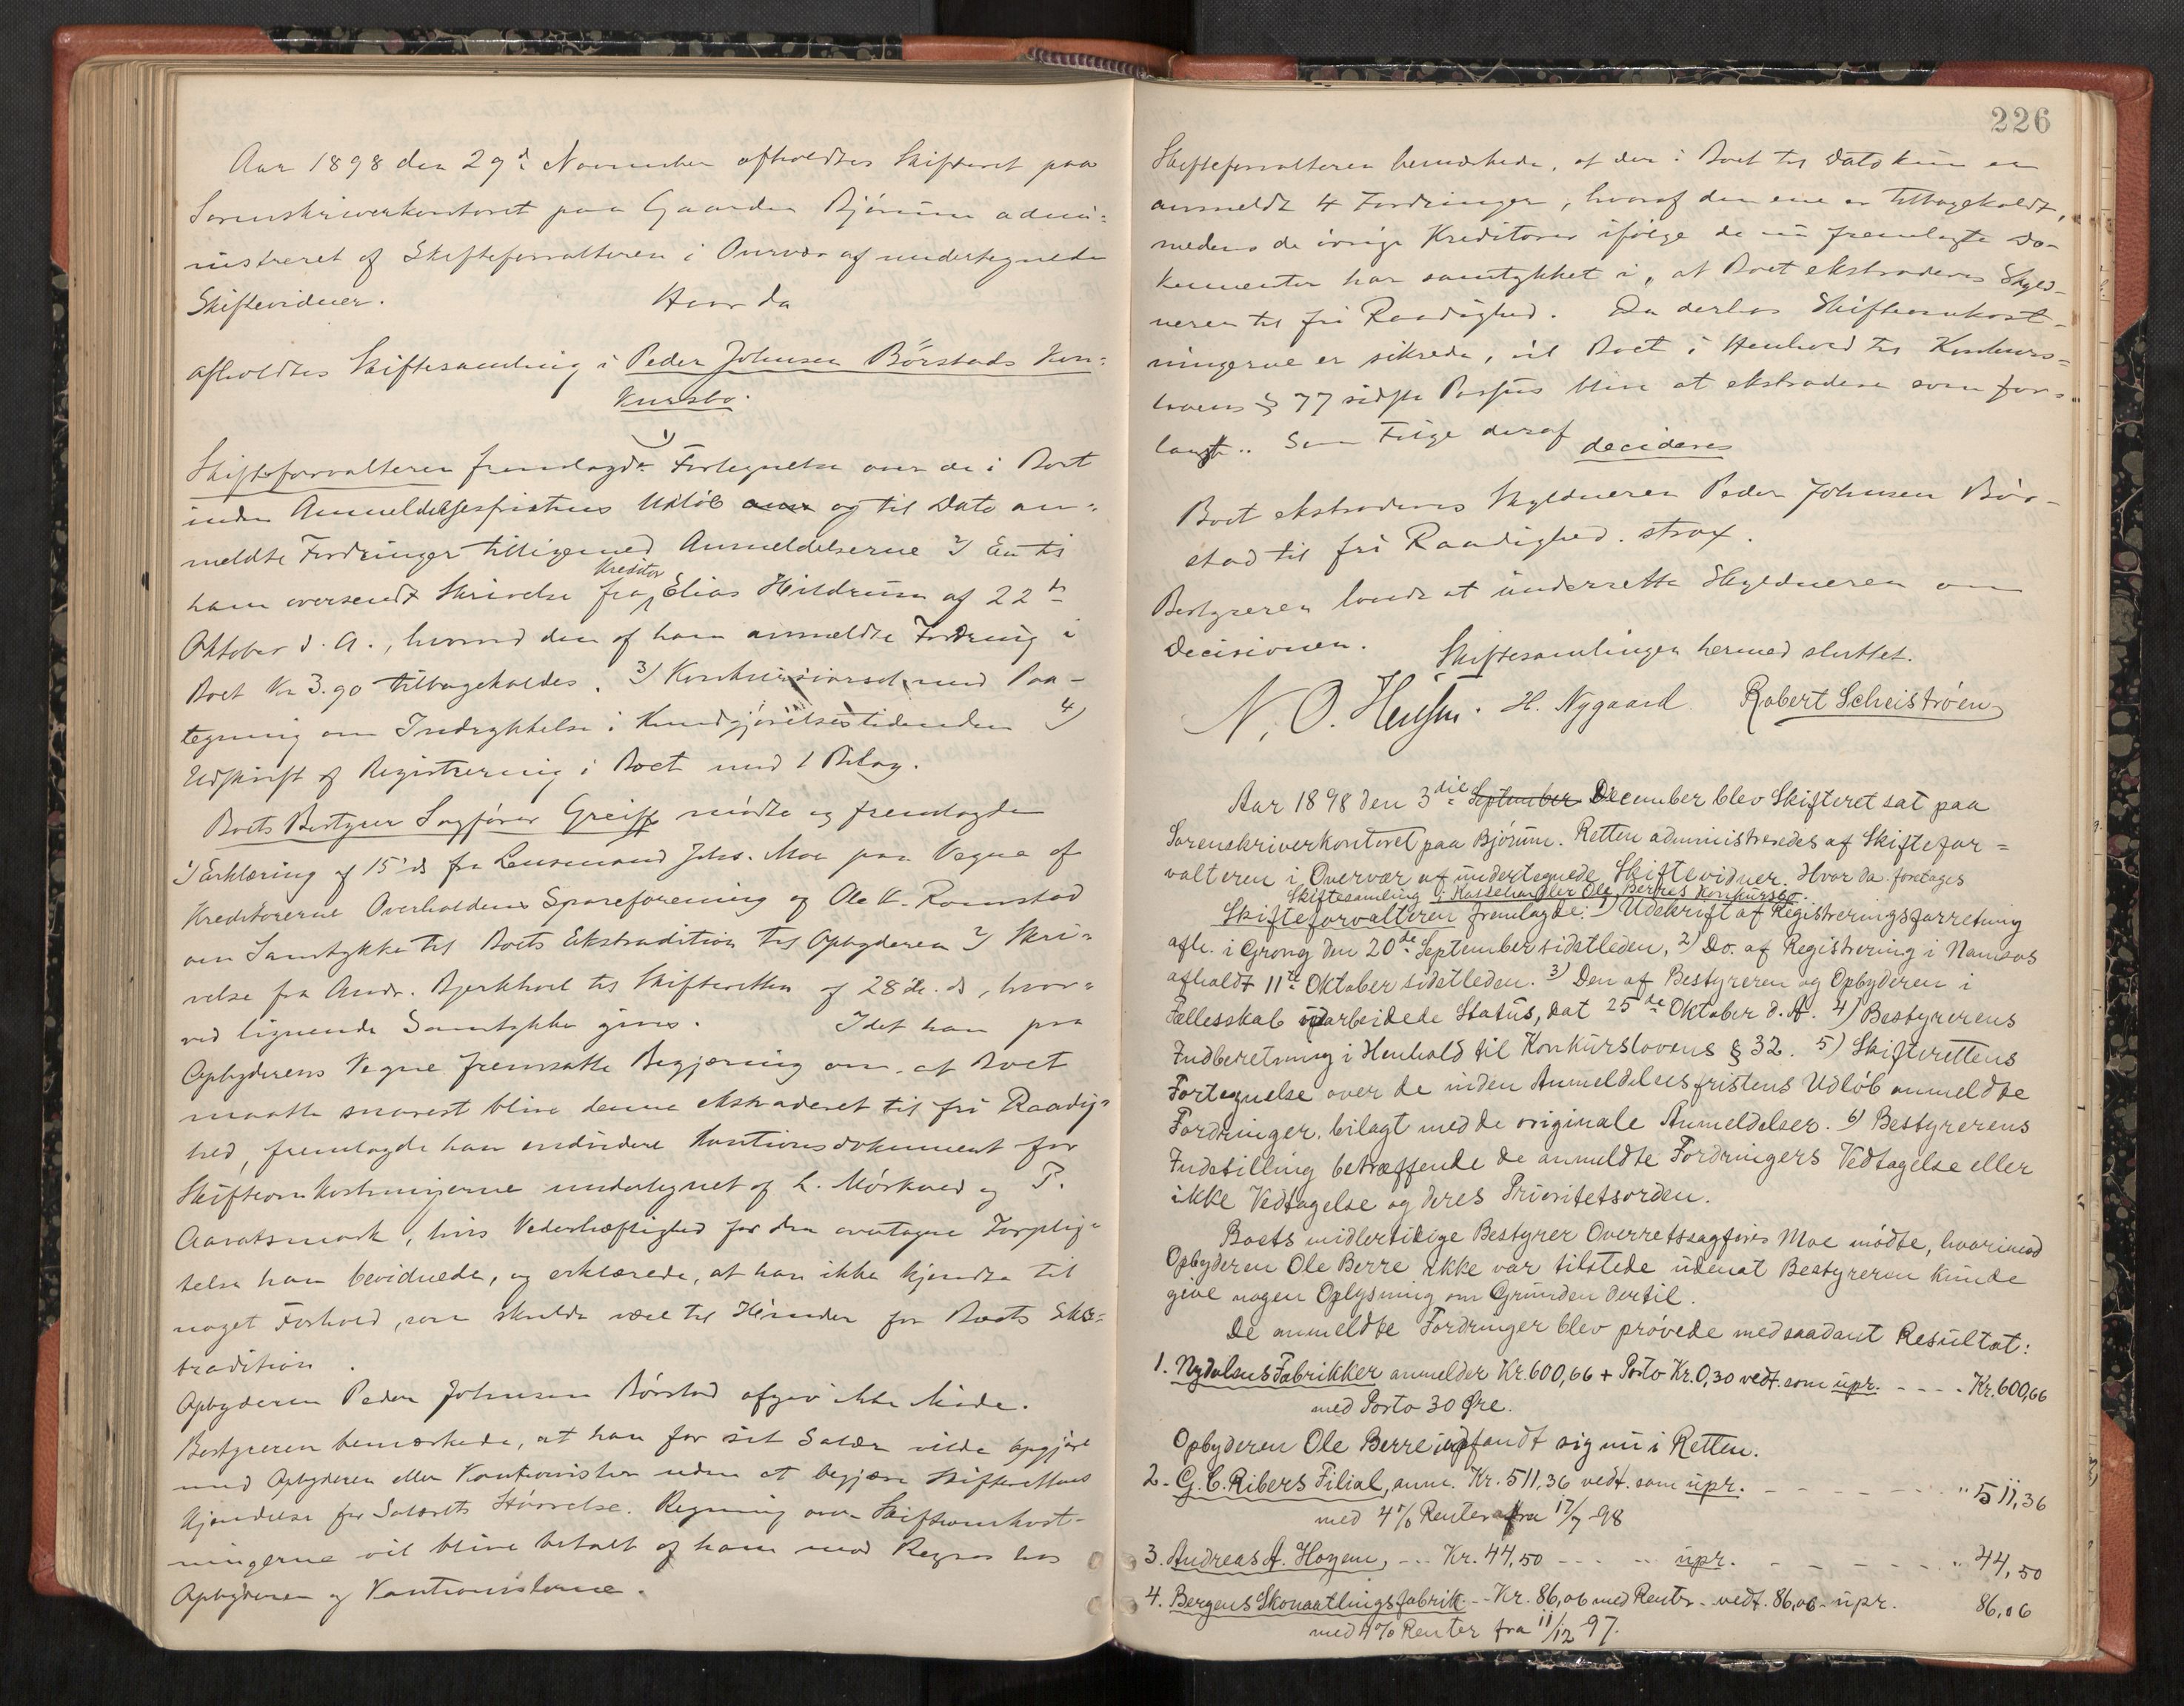 Aar 1898 den 29d November afholdtes Skifteret paa
Sorenskriverkontoret paa Gaarden Bjørum admi=
nistreret af Skifteforvalteren i Overvær af undertegnede
Skiftevidner. Hvor da
afholdtes Skiftesamling i Peder Johnsen Børstads Kon=
kursbo.
Skifteforvalteren fremlagde 1) Fortegnelse over de i Boet
inden Anmeldelsesfristens Udløb og til Dato an=
meldte Fordringer tilligemed Anmeldelserne 2) En til
ham oversendt Skrivelse fra Kreditor Elias Hildrum af 22de
Oktober d. A., hvorved den af ham anmeldte Fordring i
Boet Kr 3.90 tilbagekaldes. 3) Konkursinnsel. med Paa-
tegning om Indrykkelse i Kundgjørelsestidenden 4)
Udskrift af Registrering i Boet med 1 Bilag.
Boets Bestyrer Sagfører Greiff mødte og fremlagde
1) Erklæring af 15' ds fra Lensmand Johs. Moe paa Vegne af
Kreditorerne Overhaldens Spareforening og Ole K. Romstad
om Samtykke til Boets Ekstradition til Opbyderen 2) Skri=
velse fra Andr. Bjerkhoel til Skifteretten af 28de. ds, hvor=
ved lignende Samtykke gives. Idet han paa
Opbyderens Vegne fremsatte Begjæring om, at Boet
maatte snarest blive denne ekstraderet til fri Raadig=
hed, fremlagde han endvidere Kautionsdokument for
Skifteomkostningerne undertegnet af L. Mørkved og P.
Aavatsmark, hvis Vederhæftighed for den overtagne Forplig=
telse han bevidnede, og erklærede, at han ikke kjendte til
noget Forhold, som skulde være til Hinder for Boets Eks=
tradition.
Opbyderen Peder Johnsen Børstad afgav ikke Møde.
Bestyreren bemærkede, at han for sit Salær vilde opgjøre
med Opbyderen eller Kautionisten uden at begjære Skifterettens
Kjendelse for Salærets Størrelse. Regning over Skifteomkost-
ningerne vil blive betalt af ham mod Regres hos
Opbyderen og Kautionisterne.
226
Skifteforvalteren bemærkede, at der i Boet til Dato kun er
anmeldt 4 Fordringer, hvoraf den ene er tilbagekaldt,
medens de øvrige Kreditorer ifølge de nu fremlagte Do-
kumenter har samtykket i, at Boet ekstraderes Skyld-
neren til fri Raadighed. Da derhos Skifteomkost-
ningerne er sikrede, vil Boet i Henhold til Konkurs-
lovens § 77 sidste Passus blive at ekstradere som for-
langt. Som Følge deraf decideres
Boet ekstraderes Skyldneren Peder Johnsen Bør-
stad til fri Raadighed strax.
Bestyreren lovede at underrette Skyldneren om
Decisionen. Skiftesamlingen hermed sluttet.
N. O. H. Nygaard Robert Scheistrøen
Aar 1898 den 3die September December blev Skifteret sat paa
Sorenskriverkontoret paa Bjørum. Retten administreredes af Skiftefor=
valteren i Overvær af undertegnede Skiftevidner. Hvor da foretages
Skiftesamling i Ole Berres Konkursbo.
Skifteforvalteren fremlagde: 1) Udskrift af Registreringsforretning
afh. i Grong den 20de September sidstleden, 2) Do. af Registrering i Namsos
afholdt 11te Oktober sidstleden. 3) Den af Bestyreren og Opbyderen i
Fællesskab udarbeidede Status, dat 25de Oktober d. A. 4) Bestyrerens
Indberetning i Henhold til Konkurslovens § 32. 5) Skifterettens
Fortegnelse over de inden Anmeldelsesfristens Udløb anmeldte
Fordringer, bilagt med de originale Anmeldelser. 6) Bestyrerens
Indstilling betræffende de anmeldte Fordringers Vedtagelse eller
ikke Vedtagelse og deres Prioritetsorden.
Boets midlertidige Bestyrer Overretssagfører Moe mødte, hvorimod
Opbyderen Ole Berre ikke var tilstede uden at Bestyreren kunde
give nogen Oplysning om Grunden dertil.
De anmeldte Fordringer blev prøvede med saadant Resultat:
1. Nydalens Fabrikker anmelder Kr. 600,66 + Porto Kr. 0,30 vedt. som upr. - - - - Kr. 600,66
med Porto 30 Øre.
Opbyderen Ole Berre indfandt sig nu i Retten.
2. G. C. Ribers Filial, anm. Kr. 511,36 vedt. som upr. - - - - - - " 511,36
med 4% Renter fra 17/7 -98
3. Andreas A. Hogem, - - - Kr. 44,50 - - - - - upr. - - - - - - " 44,50
4. Bergens Skomaatlingsfabrik - - Kr. 86,06 med Renter - vedt. 86,06 - upr. 86,06
med 4% Renter fra 11/12 97.